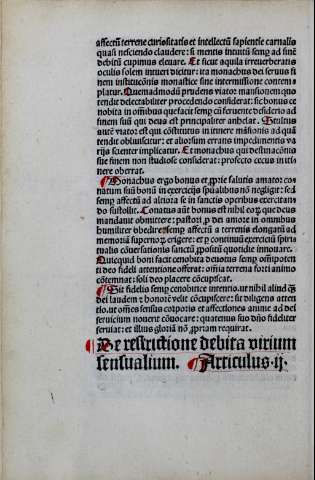 affectū terrene curiositatis et intellectū sapientie carnalis
quasi nesciendo claudere: si mentis intuitū semp ad finē
debitū cupimus eleuare. Et sicut aquila irreuerberatis
oculis solem intueri dicitur: ita monachus dei seruus fi
nem institutōnis monastice sine intermissione contem
platur. Quemadmodū prudens viator mansionem quo
tendit delectabiliter procedendo considerat: sic bonus ce
nobita in omnibus que facit semp cū feruente desiderio ad
finem suū qui deus est principaliter anhelat. Stultus
autē viator est qui cōstitutus in itinere māsionis ad quā
tendit obliuiscitur: et aliorsum errans impedimentis va
rijs scienter implicatur. Et monachus qui destinacōnis
sue finem non studiose considerat: profecto cecus in itti
nere oberrat.
Monachus ergo bonus et pprie salutis amator co
natum suū bonū in exercicijs spūalibus nō negligit: sed
semp affectū ad altiora se in sanctis operibus exercitan
do sustollit. Conatus aūt bonus est nihil eorū que deus
mandauit obmittere: pastori p dei amore in omnibus
humiliter obedire: semp affectū a terrenis elongatū ad
memoriā supernorū erigere: et p continuū exerciciū spiri
tualis cōuersationis sanctū ppositū quotidie innouare.
Quicquid boni facit cenobita deuotus semp omnipoten
ti deo fideli attentione offerat: omnia terrena forti animo
cōtemnat: soli deo placere cōcupiscat.
Sit fidelis semp cenobitice intentio. ut nihil aliud q̄
dei laudem et honorē velit cōcupiscere: sit diligens atten
tio. ut omnes sensus corporis et affectiones anime ad dei
seruicium nouerit cōuocare: quatenus suo dn̄o fideliter
seruiat: et illius gloriā nō ppriam requirat.
De restrictione debita virium
sensualium. Articulus .ij.